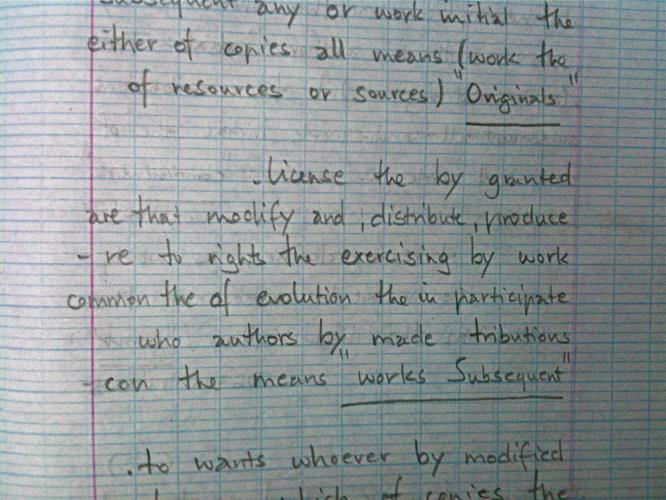 subsequent any or work initial the
either of copies all means (work the
of resources or sources) "Originals"
.license the by granted
are that modify and ,distribute ,produce
- re to rights the exercising by work
common the of evolution the in participate
who authors by made tributions
- con the means "works Subsequent"
.to wants whoever by modified
which of copies the